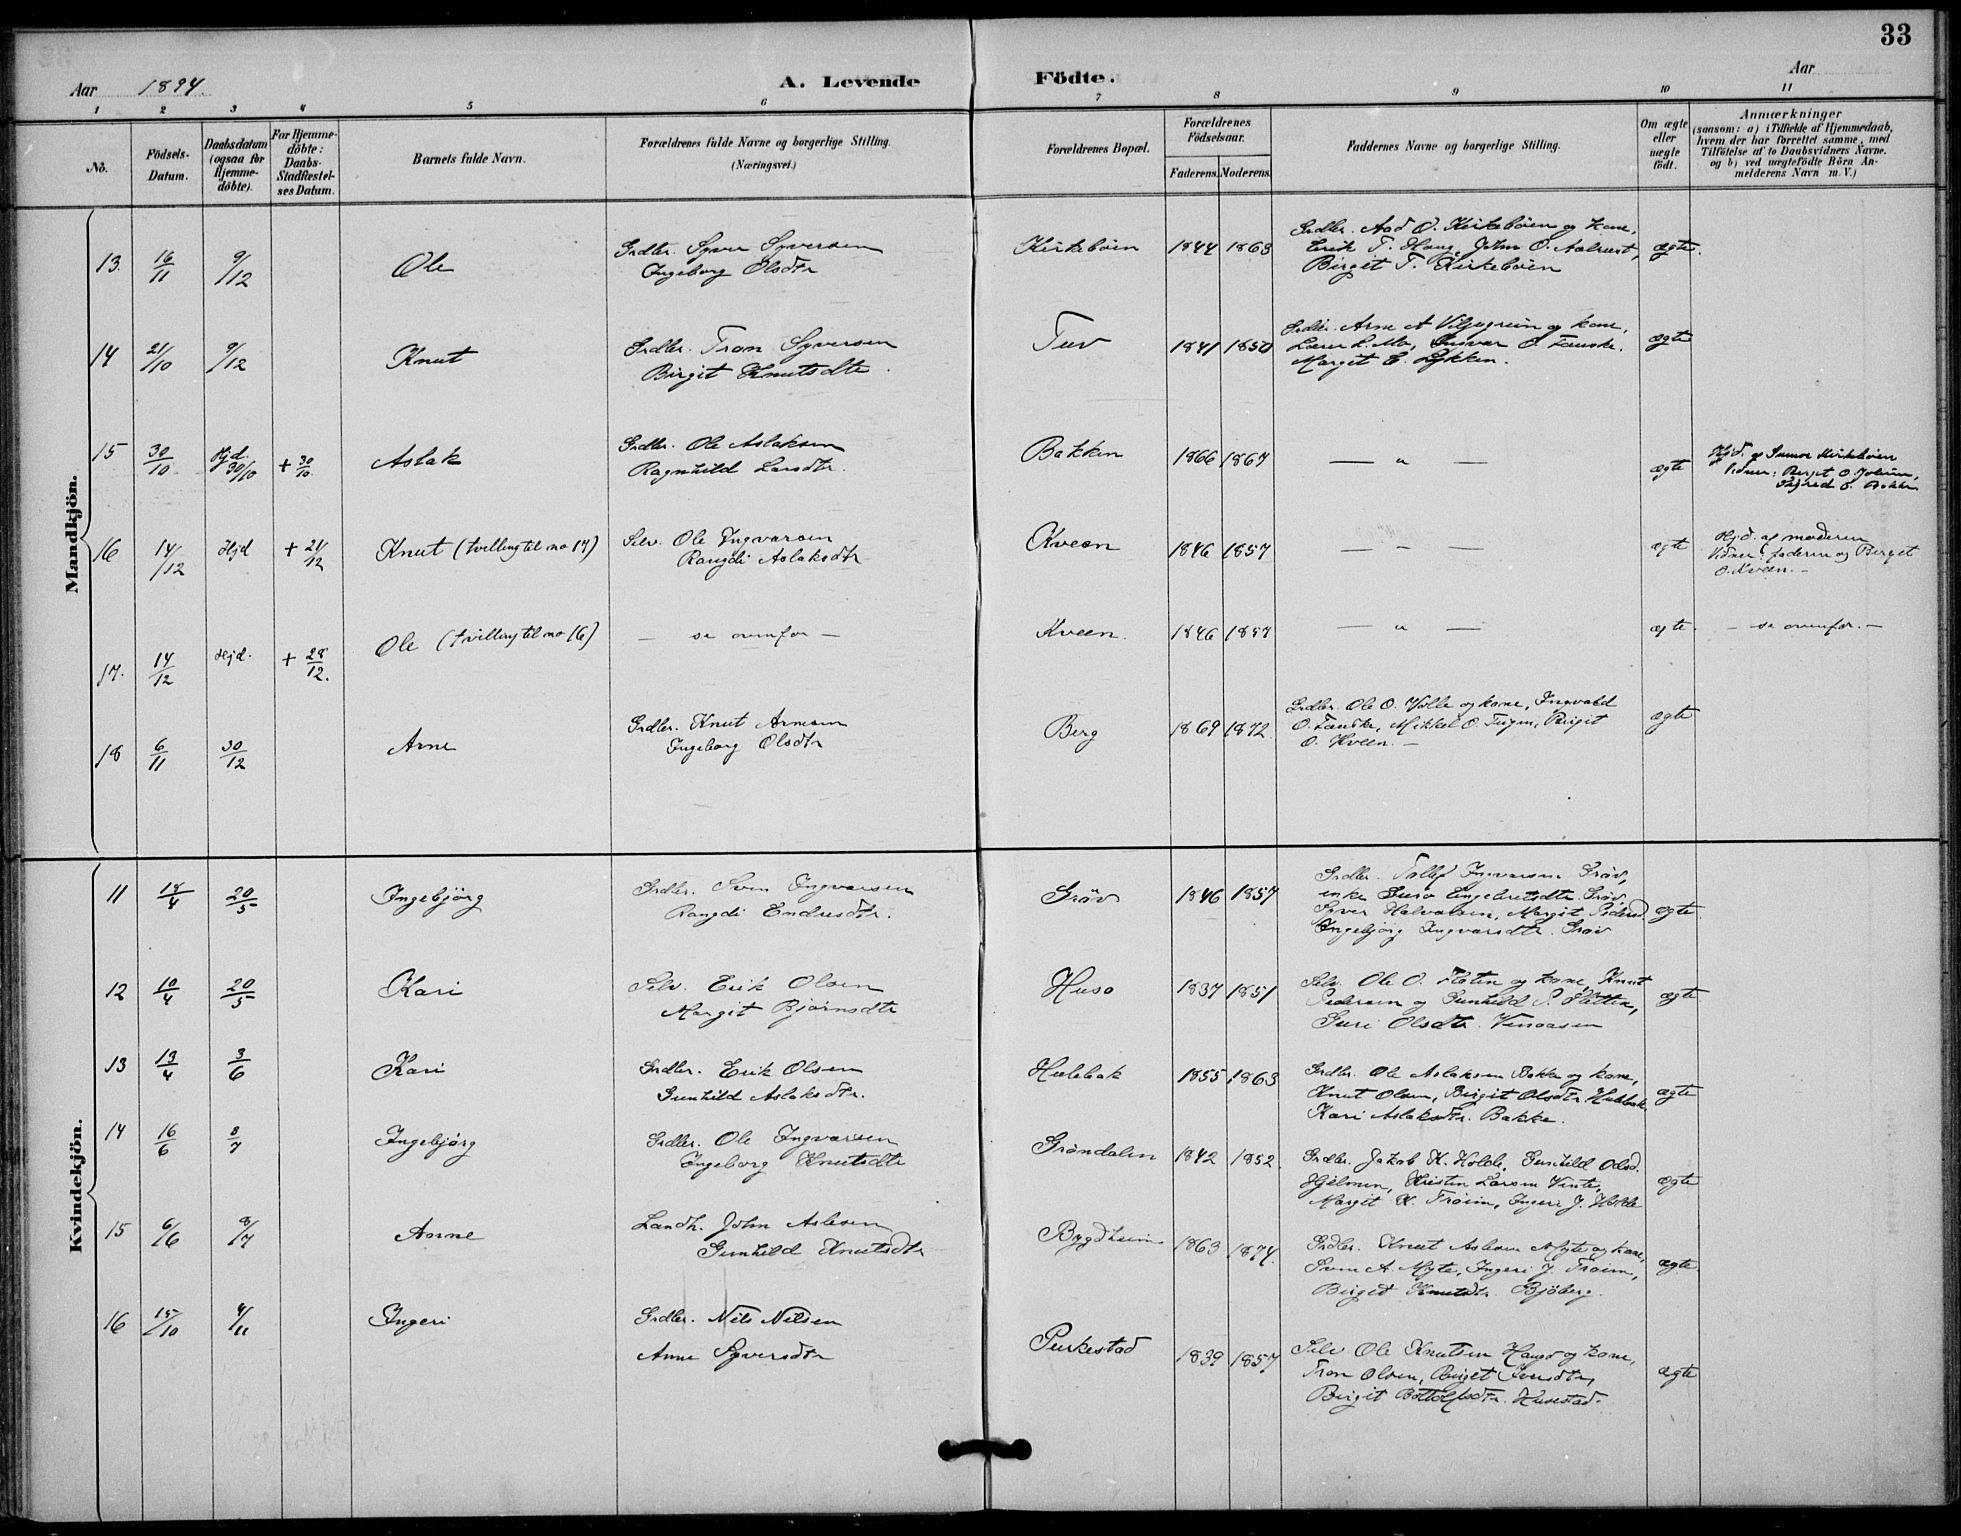 33
Aar 1894.
A. Levende Födte.
Aar
1 2 3 4 5 6 7 8 9 10 11
No.
Födsels-Datum.
Daabsdatum (ogsaa for Hjemmedöbte).
For Hjemmedöbte: Daabs-Stadfæstelses Datum.
Barnets fulde Navn.
Forældrenes fulde Navne og borgerlige Stilling. (Næringsvei.)
Forældrenes Bopæl.
Forældrenes Födselsaar.
Faderens. Moderens.
Faddernes Navne og borgerlige Stilling.
Om ægte eller uægte födt.
Anmærkninger
(saasom: a) i Tilfælde af Hjemmedaab, hvem der har forrettet samme, med Tilföielse af to Daabsvidners Navne. og b) ved uægtefödte Börn Anmelderens Navn m. V.)
Mandkjön.
13. 16/11 9/12 Ole
Grdbr. Syver Syversen
Ingeborg Olsdtr
Kirkeböen 1844 1863
Grdbr. Aad O. Kirkeböen og kone,
Erik T. Haug, John O. Aalrust,
Birgit T. Kirkeböen
ægte.
14 21/10 9/12 Knut
Grdbr. Tron Syversen
Birgit Knutsdtr.
Tuv 1841 1850
Grdbr. Arne A Viljugrein og kone,
Lærer L. Mo, Ingvar O. Fauske.
Margit E. Lykken.
ægte
15 30/10 Hjd. 30/10 + 30/10 Aslak
Grdbr. Ole Aslaksen
Ragnhild Larsdtr.
Bakken 1866 1867
— " —
ægte
Hjd. af Kirkeböen
Vidner: Berget O.
16 14/12 Hjd + 21/12 Knut (tvilling til no 17)
Selv. Ole Ingvarsen
Rangdi Aslaksdtr
Kveen 1846 1857
— " —
ægte
Hjd. af moderen
Vidner: faderen og Berget
O. Kveen. –
17. 14/12 Hjd. + 28/12. Ole (tvilling til no 16)
— se ovenfor —
Kveen. 1846 1857
— " —
ægte.
– se ovenfor. –
18 6/11 30/12 Arne
Grdbr. Knut Arnesen
Ingeborg Olsdtr
Berg 1869 1872
Grdbr. Ole O. Volle og kone, Ingvald
O. Fauske, Mikkel O. Birgit
O. Kveen. –
ægte
Kvindekjön.
11 18/4 20/5 Ingebjörg
Grdbr. Sven Ingvarsen
Rangdi Endresdtr.
Gröv 1846 1857
Grdbr. Ingvarsen Gröv,
enke Guro Engebretsdtr. Gröv,
Syver Halvorsen, Margit Pedersd.
Ingebjörg Ingvarsdtr. Gröv
ægte.
12 10/4 20/5 Kari
Selv. Erik Olsen
Margit Björnsdtr
Huso 1837 1851
Selv. Ole O. Floten og kone, Knut
Pedersen og Gunhild P.
Guri Olsdtr.
ægte
13 13/4 3/6 Kari
Grdbr. Erik Olsen
Gunhild Aslaksdtr.
Hulebak 1855 1863
Grdbr. Ole Aslaksen Bakke og kone,
Knut Olsen, Birgit Olsdtr. Hulebak
Kari Aslaksdtr. Bakke.
ægte
14 16/6 8/7 Ingebjörg
Grdbr. Ole Ingvarsen
Ingeborg Knutsdtr
Gröndalen 1842 1852.
Grdbr. Jakob K. Holde, Gunhild Olsd.
Hjelmen, Kristen Larsen Vinte,
Margit K. Tröim, Ingeri J. Holde
ægte
15 6/6 8/7 Anne
Landh. John Aslesen
Gunhild Knutsdtr
Bygdheim 1863 1874.
Grdbr. Knut Aslesen Myte og kone,
Sven A. Myte, Ingeri J. Troim,
Birgit Knutsdtr. Bjöberg.
ægte.
16 15/10 4/11 Ingeri
Grdbr. Nils Nilsen
Anne Syversdtr
Perkestad 1839 1857
Selv. Ole Knutsen Haugo og kone,
Tron Olsen, Birget Iversdtr,
Birgit Bottolfsdtr. Husestad.
ægte